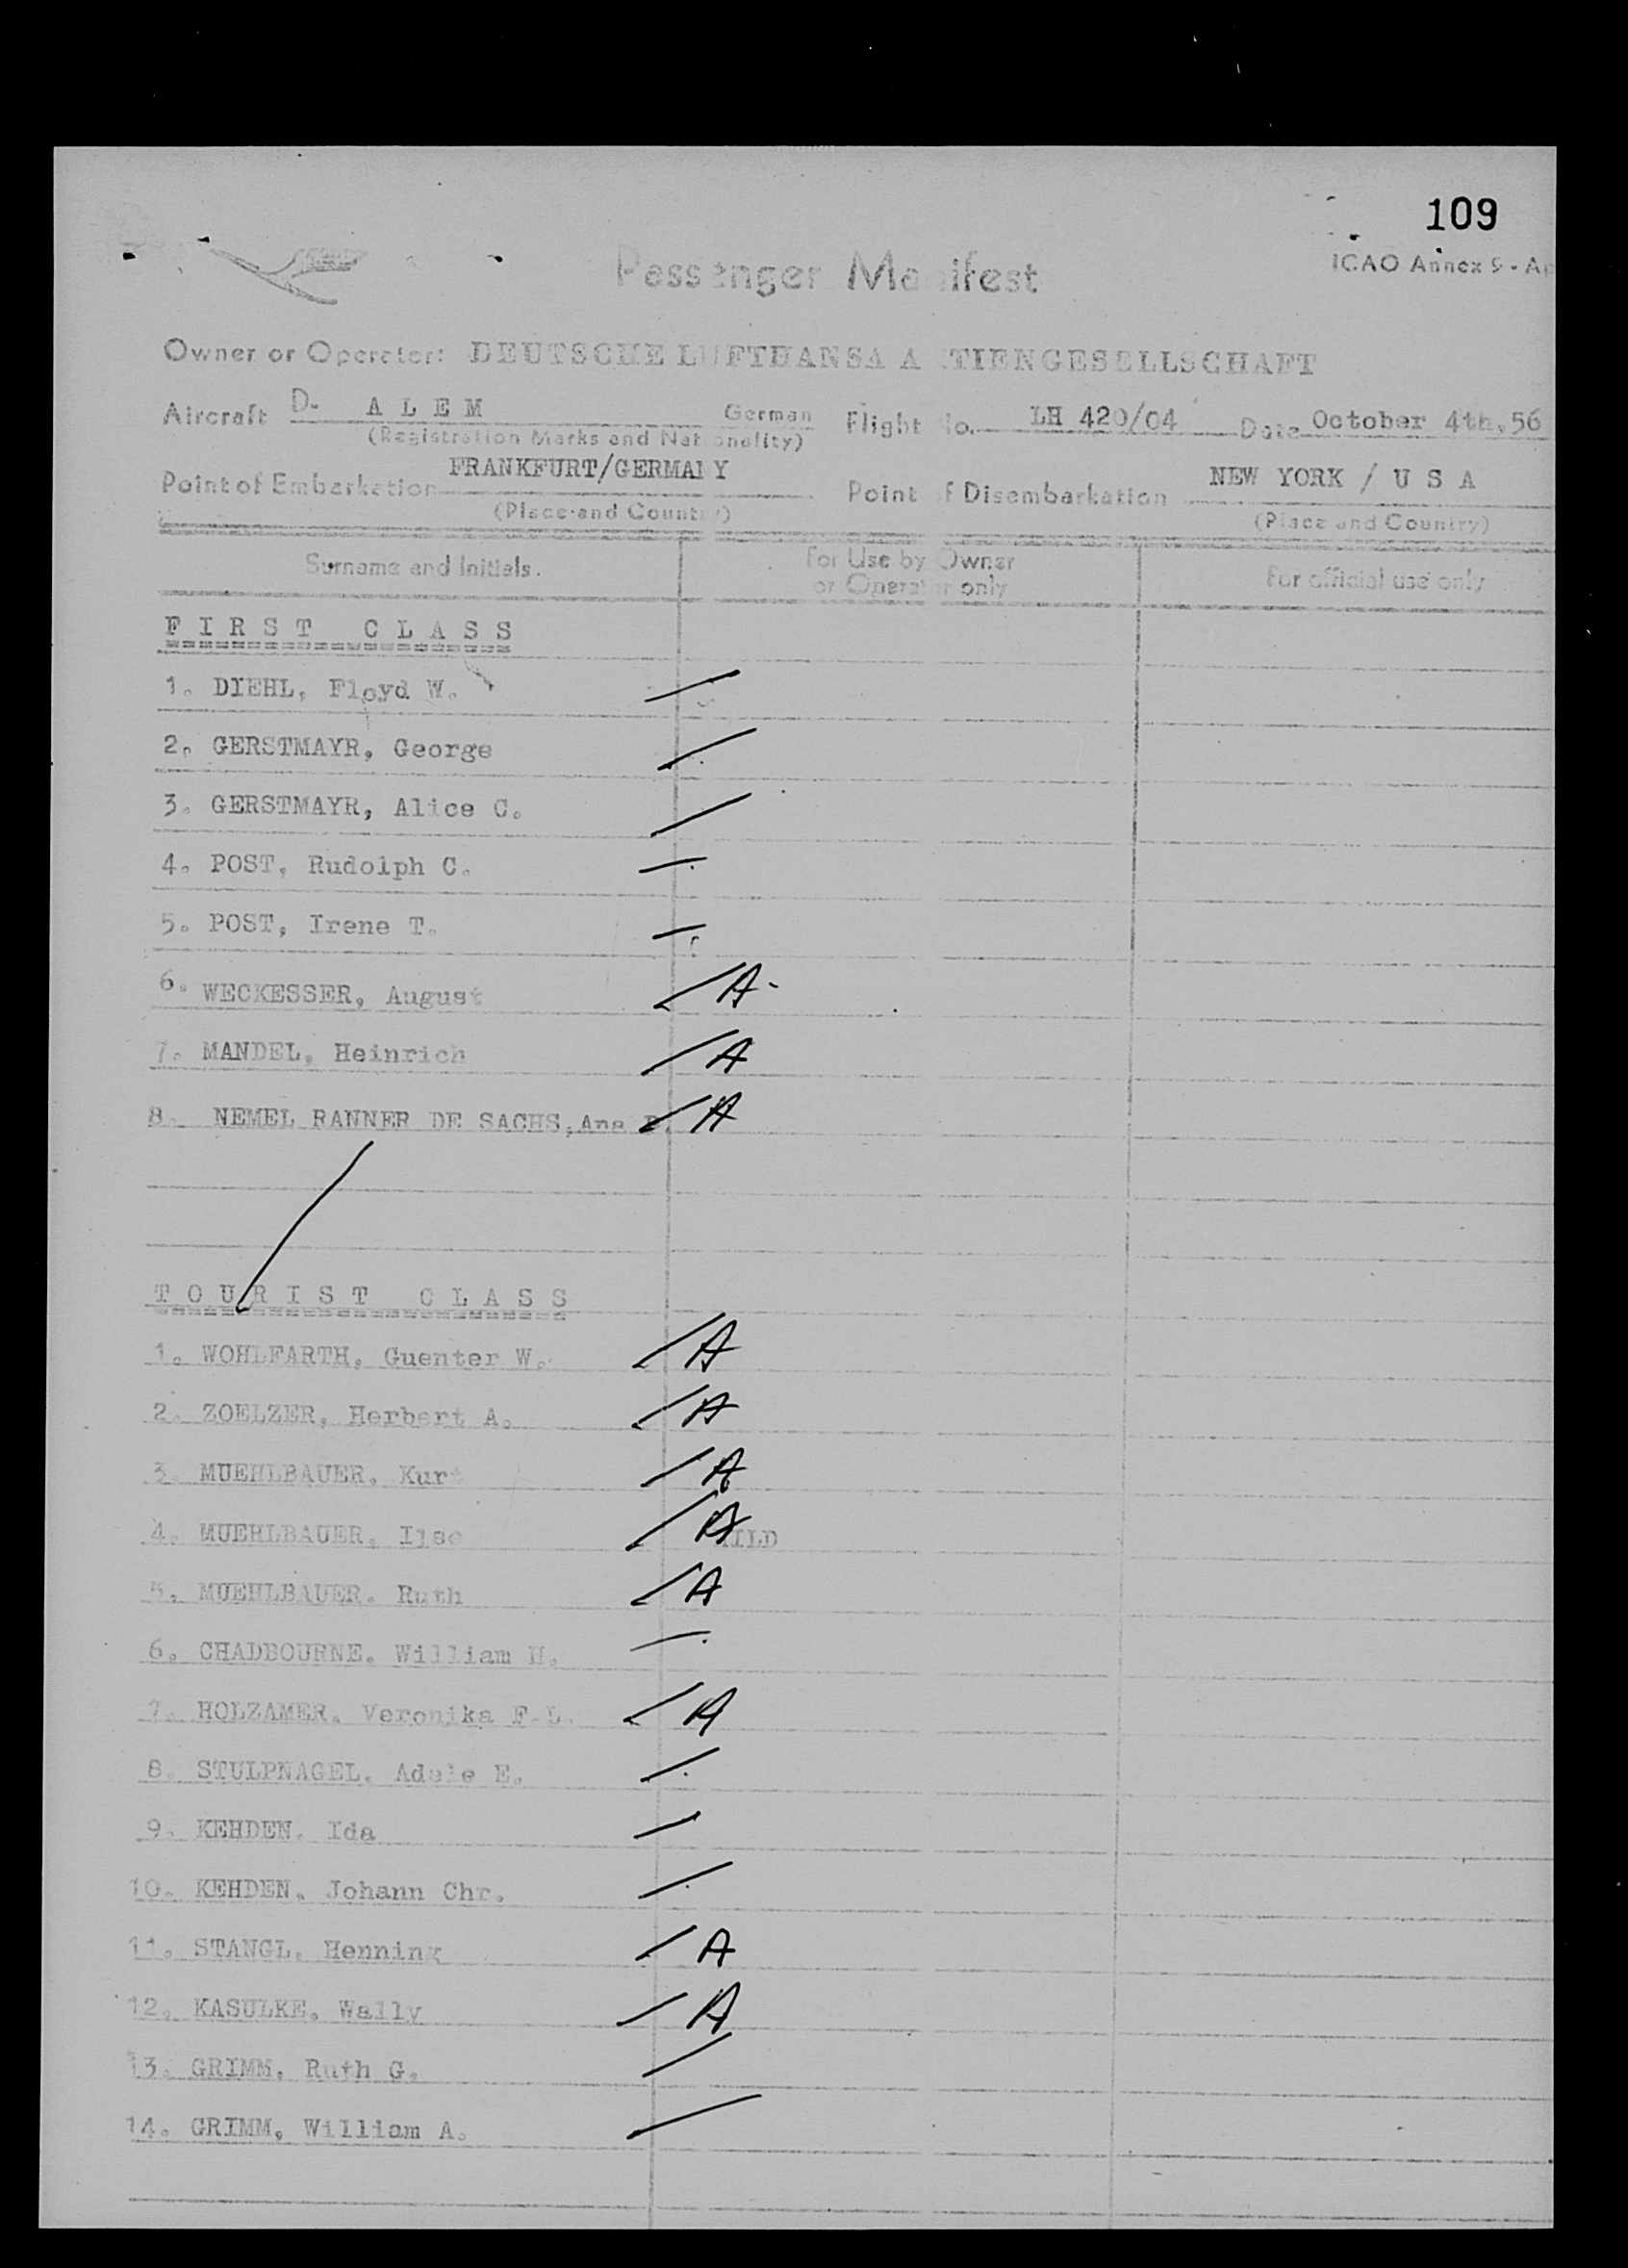 109
ICAO Annex 9 - Ap
Passenger Manifest
Owner or Operator: DEUTSCHE LUFTHANSA AKTIENGESELLSCHAFT
Aircraft D- A L E M German Flight No. LH 420/04 Date October 4th. 56
(Registration Marks and Nationality)
Point of Embarkation FRANKFURT/GERMANY Point of Disembarkation NEW YORK / U S A
(Place and Country) (Place and Country)
Surname and Initials. For Use by Owner or Operator only For official use only
F I R S T C L A S S
1. DIEHL, Floyd W.
2. GERSTMAYR, George
3. GERSTMAYR, Alice C.
4. POST, Rudolph C.
5. POST, Irene T.
6. WECKESSER, August A-
7. MANDEL, Heinrich A
8. NEMEL RANNER DE SACHS, Ana A
T O U R I S T C L A S S
1. WOHLFARTH, Guenter W. A
2. ZOELZER, Herbert A. A
3. MUEHLBAUER, Kurt A
4. MUEHLBAUER, Ilse A
5. MUEHLBAUER, Ruth A
6. CHADBOURNE, William H.
7. HOLZAMER, Veronika F. L. A
8. STULPNAGEL, Adele E.
9. KEHDEN, Ida
10. KEHDEN, Johann Chr.
11. STANGL, Henning A
12. KASULKE, Wally A
13. GRIMM, Ruth G.
14. GRIMM, William A.